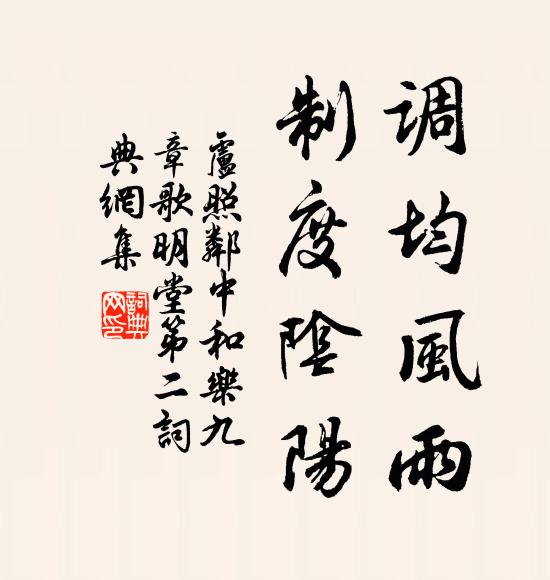 調均風雨
制度陰陽
盧照鄰中和樂九
章歌明堂第二詞
典網集
詞典
网印